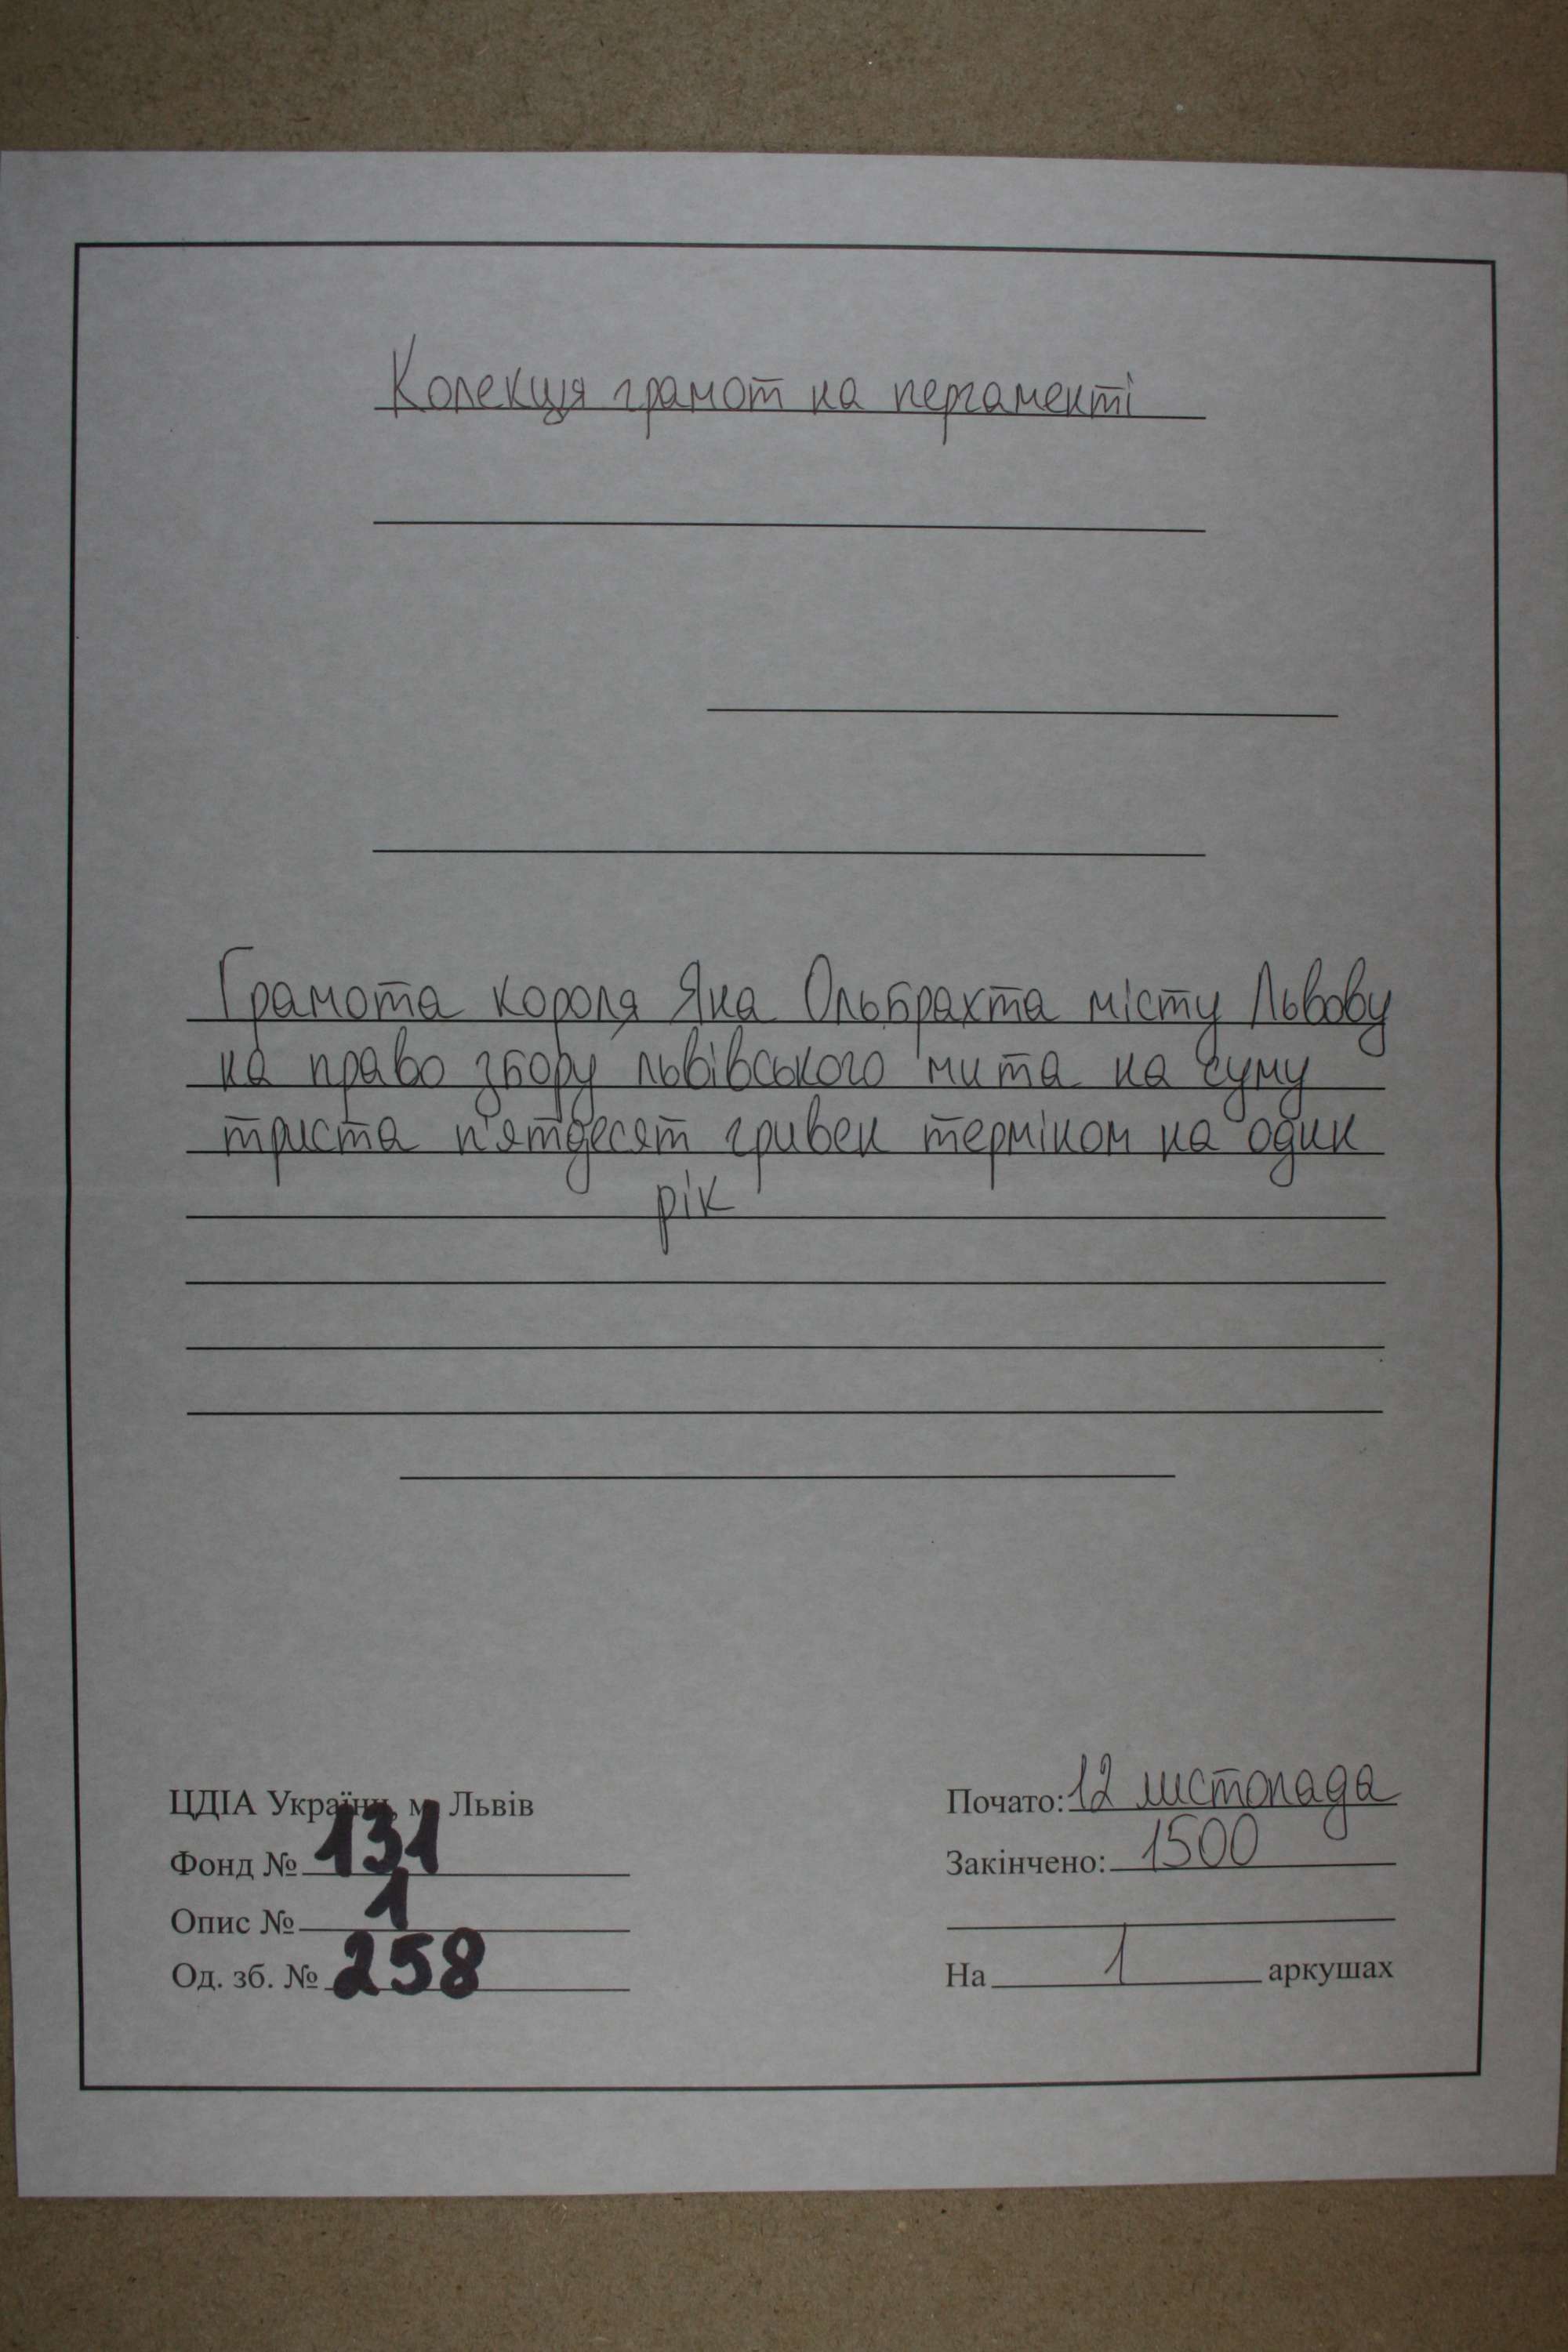 Колекція грамот на пергаменті
Грамота короля Яна Ольбрахта місту Львову
на право збору львівського мита на суму
триста п'ятдесят гривен терміном на один
рік
ЦДІА України, м. Львів
Фонд № 131
Опис № 1
Од. зб. № 258
Почато: 12 листопада
Закінчено: 1500
На 1 аркушах